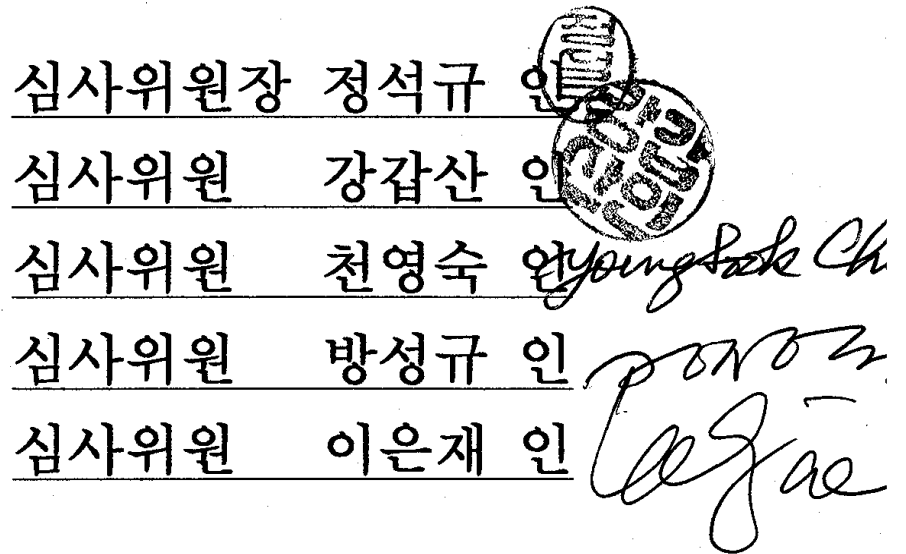 심사위원장 정석규 인
심사위원 강갑산 인
심사위원 천영숙 인
Young Sook
심사위원 방성규 인
심사위원 이은재 인